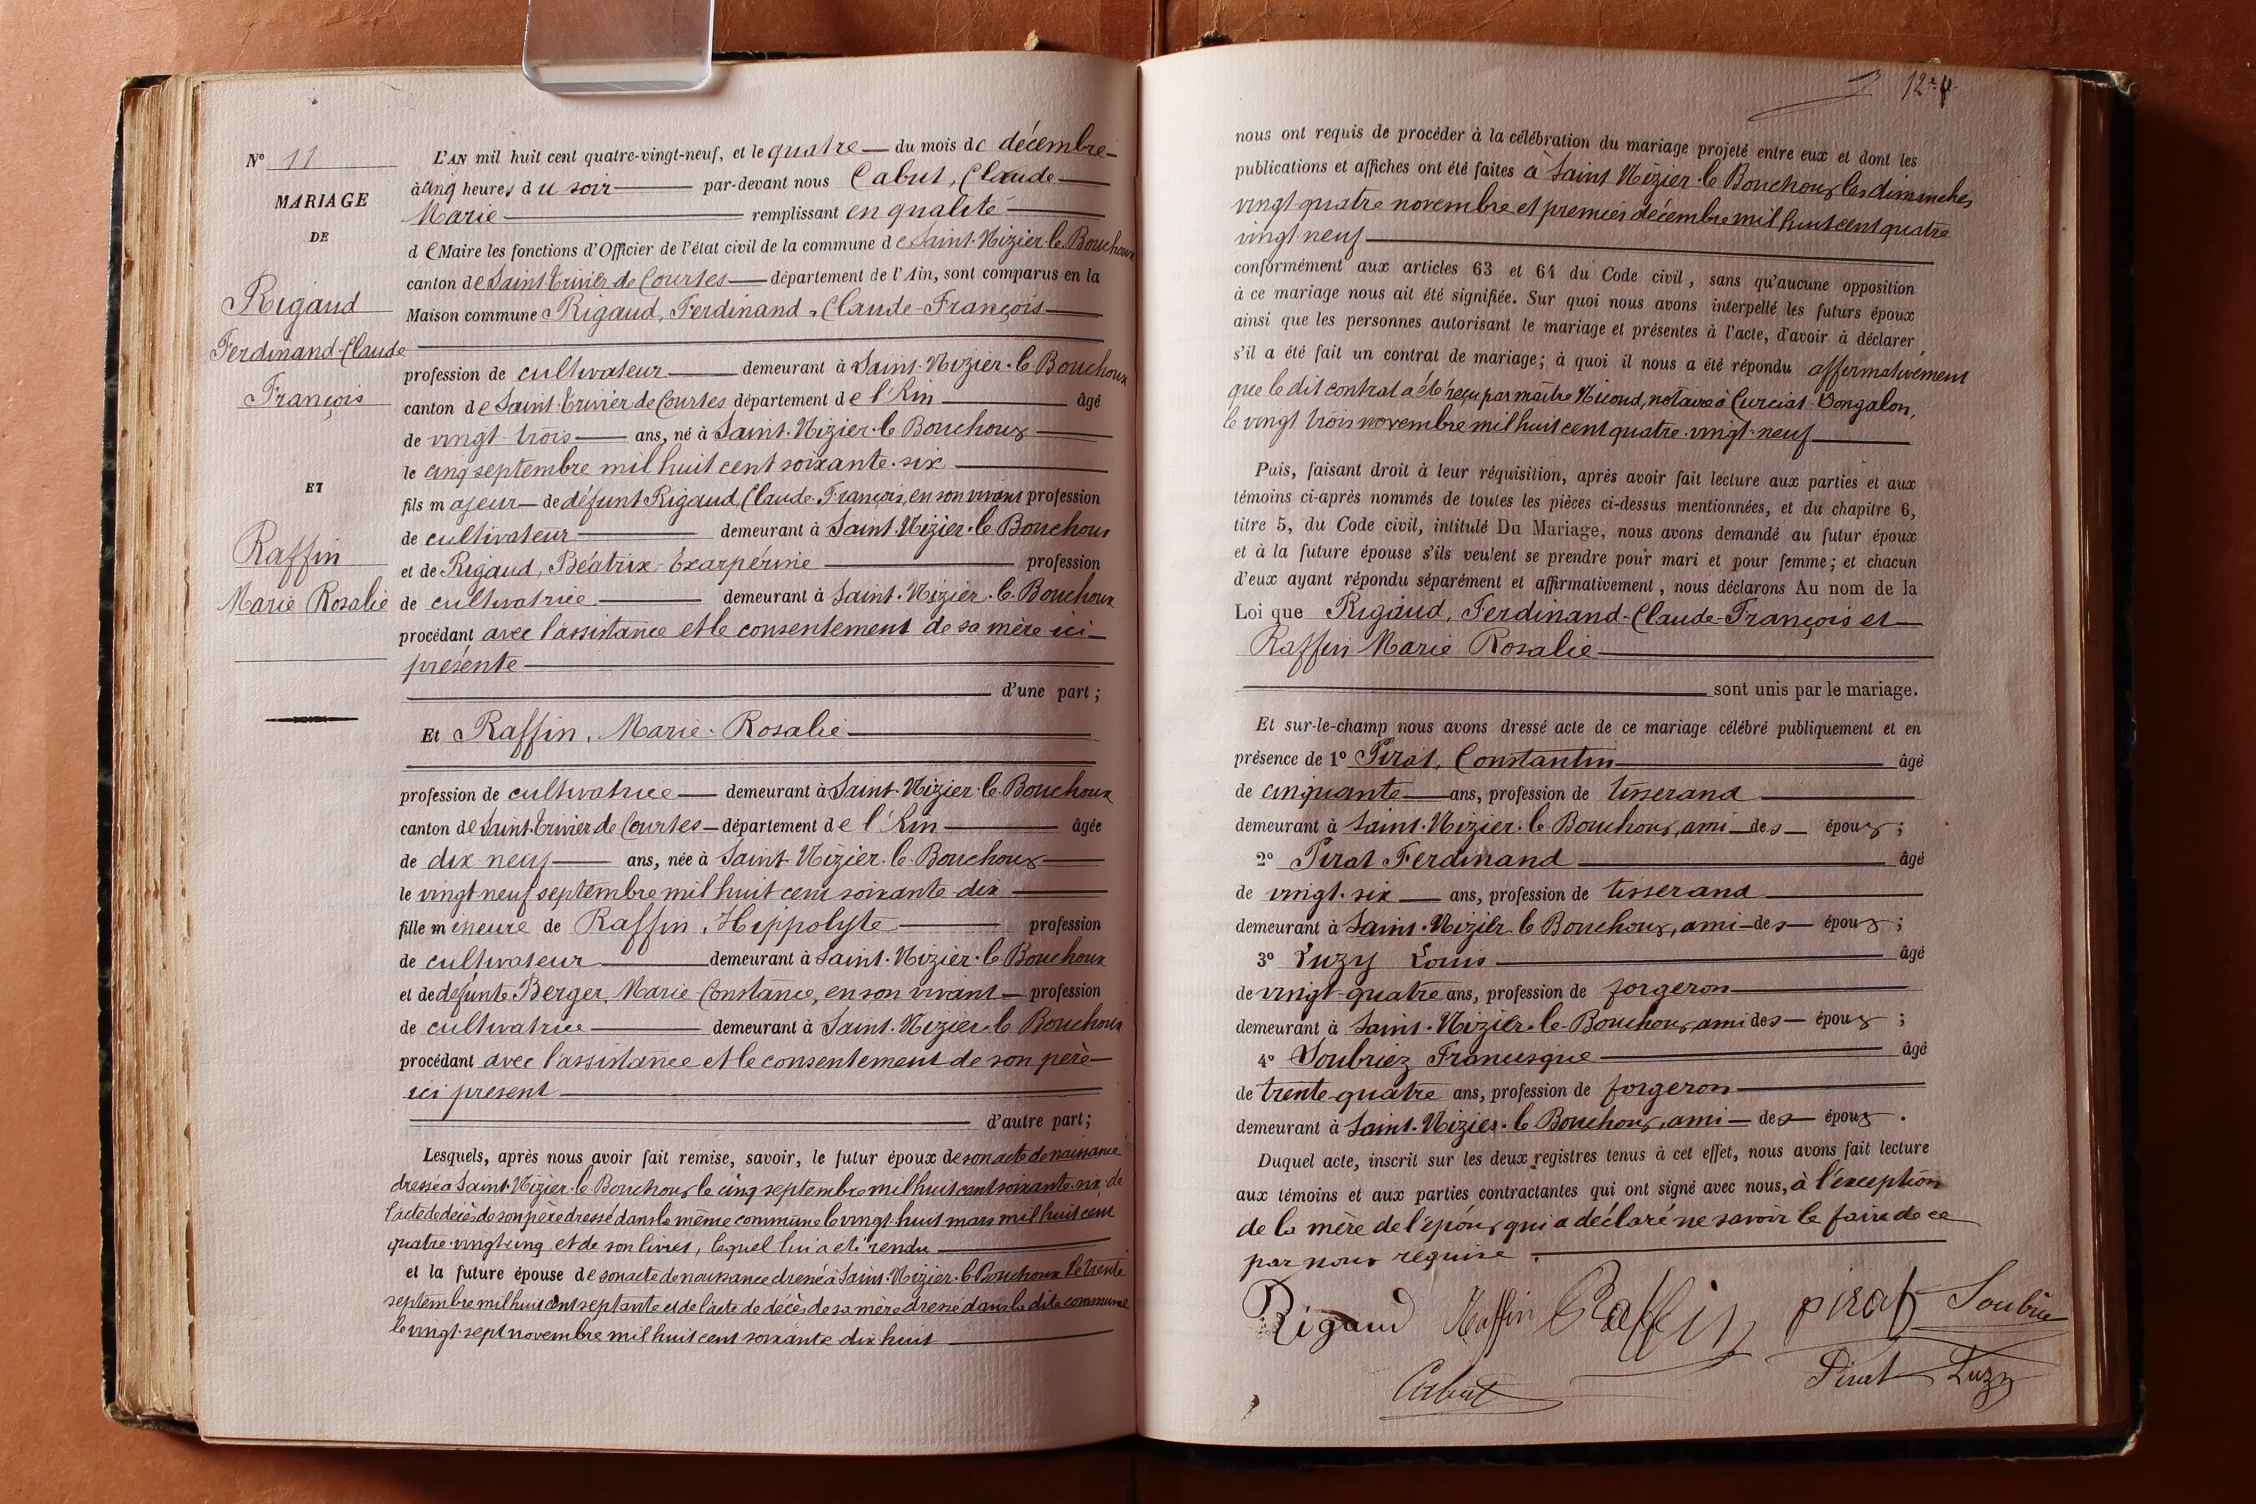 N° 11
MARIAGE
DE
Rigaud
Ferdinand-Claude
François
ET
Raffin
Marie Rosalie
L'AN mil huit cent quatre-vingt-neuf, et le quatre du mois de décembre
à cinq heures du soir par-devant nous Cabut, Claude
Marie remplissant en qualité
de Maire les fonctions d'Officier de l'état civil de la commune de Saint-Nizier-le-Bouchoux
canton de Saint-Trivier de Courtes département de l'Ain, sont comparus en la
Maison commune Rigaud, Ferdinand-Claude-François
profession de cultivateur demeurant à Saint-Nizier-le Bouchoux
canton de Saint-Trivier de Courtes département de l'Ain âgé
de vingt-trois ans, né à Saint-Nizier-le Bouchoux
le cinq septembre mil huit cent soixante-six
fils majeur de défunt Rigaud Claude-François, en son vivant profession
de cultivateur demeurant à Saint-Nizier-le Bouchoux
et de Rigaud, Béatrix-Exarpérine profession
de cultivatrice demeurant à Saint-Nizier-le-Bouchoux
procédant avec l'assistance et le consentement de sa mère ici
présente
d'une part;
Et Raffin, Marie-Rosalie
profession de cultivatrice demeurant à Saint-Nizier-le-Bouchoux
canton de Saint-Trivier de Courtes département de l'Ain âgée
de dix-neuf ans, née à Saint-Nizier-le-Bouchoux
le vingt neuf septembre mil huit cent soixante-dix
fille mineure de Raffin, Hippolyte profession
de cultivateur demeurant à Saint-Nizier-le Bouchoux
et de défunte Berger, Marie Constance, en son vivant profession
de cultivatrice demeurant à Saint-Nizier-le Bouchoux
procédant avec l'assistance et le consentement de son père
ici présent
d'autre part;
Lesquels, après nous avoir fait remise, savoir, le futur époux de son acte de naissance
dressé à Saint-Nizier-le Bouchoux le cinq septembre mil huit cent soixante-six, de
l'acte de décès de son père dressé dans la même commune le vingt-huit mars mil huit cent
quatre-vingt-cinq et de son livret, lequel lui a été rendu
et la future épouse de son acte de naissance dressé à Saint-Nizier-le Bouchoux le trente
septembre mil huit cent septante et de l'acte de décès de sa mère dressé dans la dite commune
le vingt-sept novembre mil huit cent soixante dix huit
124
nous ont requis de procéder à la célébration du mariage projeté entre eux et dont les
publications et affiches ont été faites à Saint Nizier-le Bouchoux les dimanches
vingt quatre novembre et premier décembre mil huit cent quatre
vingt-neuf
conformément aux articles 63 et 64 du Code civil, sans qu'aucune opposition
à ce mariage nous ait été signifiée. Sur quoi nous avons interpellé les futurs époux
ainsi que les personnes autorisant le mariage et présentes à l'acte, d'avoir à déclarer
s'il a été fait un contrat de mariage; à quoi il nous a été répondu affirmativement
que le dit contrat a été reçu par maître Nicoud, notaire à Curciat-Dongalon,
le vingt trois novembre mil huit cent quatre-vingt-neuf
Puis, faisant droit à leur réquisition, après avoir fait lecture aux parties et aux
témoins ci-après nommés de toutes les pièces ci-dessus mentionnées, et du chapitre 6,
titre 5, du Code civil, intitulé Du Mariage, nous avons demandé au futur époux
et à la future épouse s'ils veulent se prendre pour mari et pour femme; et chacun
d'eux ayant répondu séparément et affirmativement, nous déclarons Au nom de la
Loi que Rigaud, Ferdinand-Claude-François et
Raffin Marie Rosalie
sont unis par le mariage.
Et sur-le-champ nous avons dressé acte de ce mariage célébré publiquement et en
présence de 1° Pirat, Constantin âgé
de cinquante ans, profession de tisserand
demeurant à Saint-Nizier-le Bouchoux, ami des époux;
2° Pirat Ferdinand âgé
de vingt-six ans, profession de tisserand
demeurant à Saint-Nizier le Bouchoux, ami des époux;
3° Luzy Louis âgé
de vingt-quatre ans, profession de forgeron
demeurant à Saint-Nizier-le-Bouchoux, ami des époux;
4° Soubriez Francisque âgé
de trente-quatre ans, profession de forgeron
demeurant à Saint-Nizier-le Bouchoux, ami des époux.
Duquel acte, inscrit sur les deux registres tenus à cet effet, nous avons fait lecture
aux témoins et aux parties contractantes qui ont signé avec nous, à l'exception
de la mère de l'époux qui a déclaré ne savoir le faire de ce
par nous requise.
Rigaud Raffin Raffin pirat Soubrie
Cabut Pirat Luzy